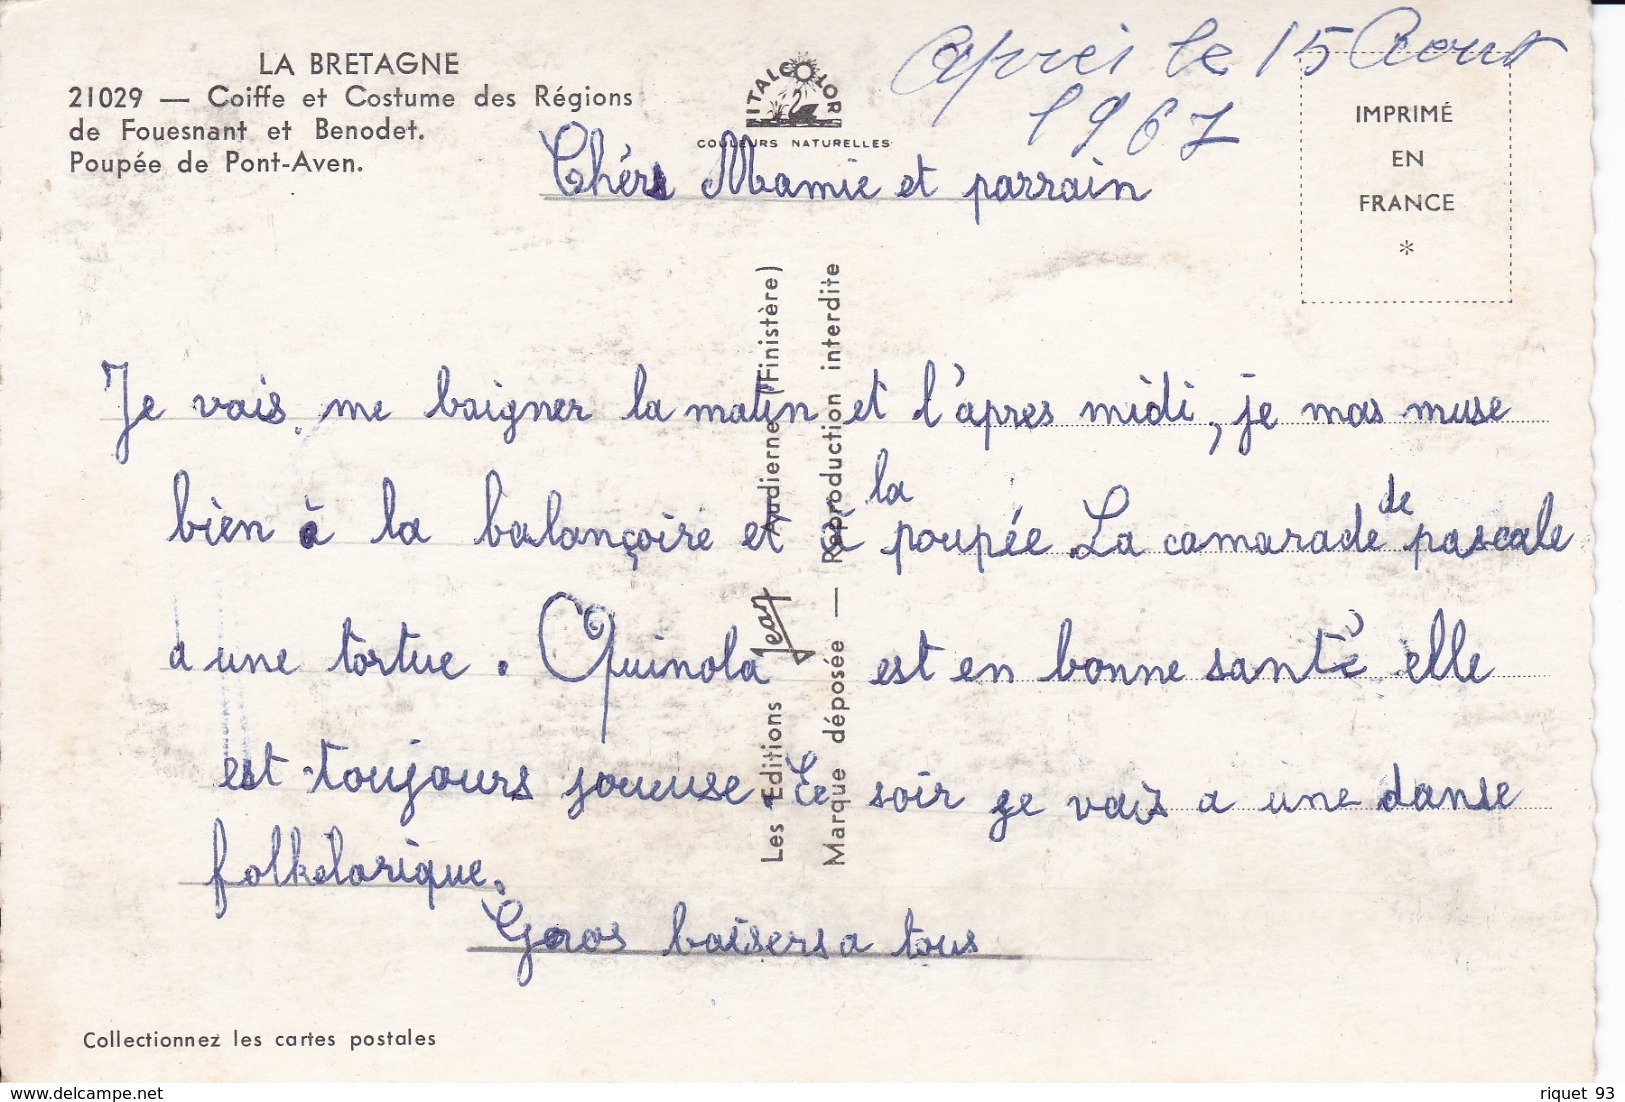 LA BRETAGNE
21029 — Coiffe et Costume des Régions
de Fouesnant et Benodet.
Poupée de Pont-Aven.
ITALCOLOR
COULEURS NATURELLES
après le 15 Aout
1967
IMPRIMÉ
EN
FRANCE
*
Chérs Mamie et parrain
Je vais me baigner la matin et l'apres midi, je mas muse
bien à la balançoire et à la poupée La camarade de pascale
a une tortue. Quinola est en bonne santé elle
est toujours joueuse. Ce soir je vais a une danse
folkelorique.
Gros baisers a tous
Les Editions Jean Audierne (Finistère)
Marque déposée — Reproduction interdite
Collectionnez les cartes postales
www.delcampe.net
riquet 93